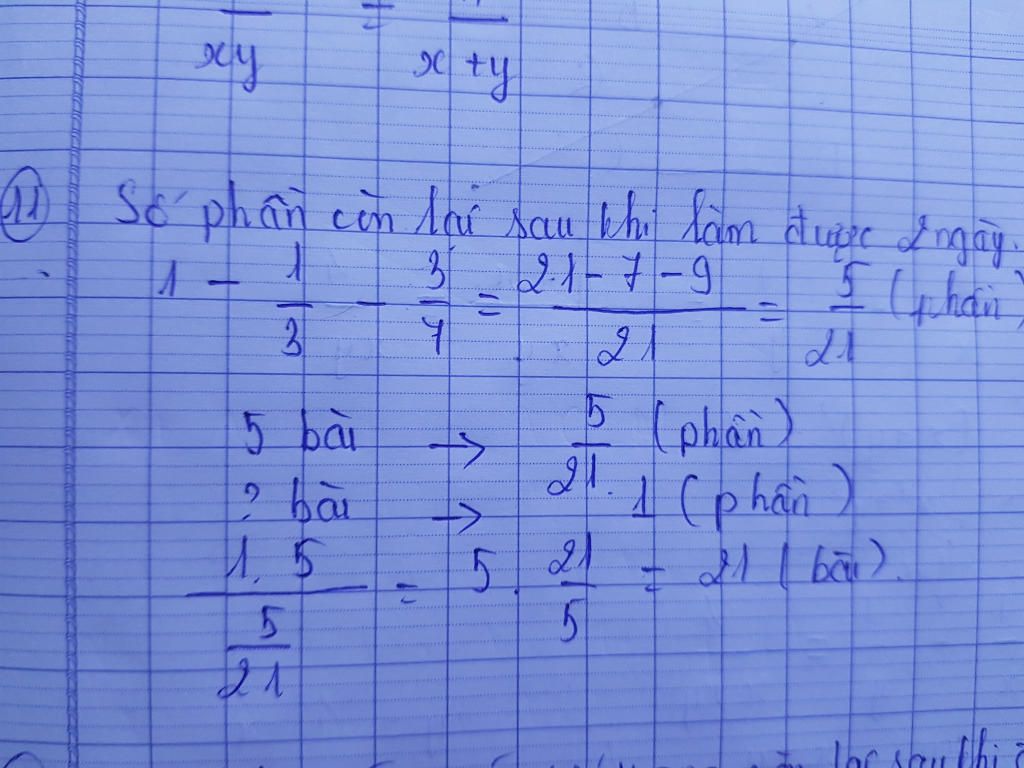 xy = x + y
11 Số phần còn lại sau khi làm được 2 ngày.
1 - 1/3 - 3/7 = 2.1 - 7 - 9 / 21 = 5/21 (phần)
5 bài → 5/21 (phần)
? bài → 1 (phần)
1.5 / (5/21) = 5 . 21/5 = 21 (bài).
sau khi